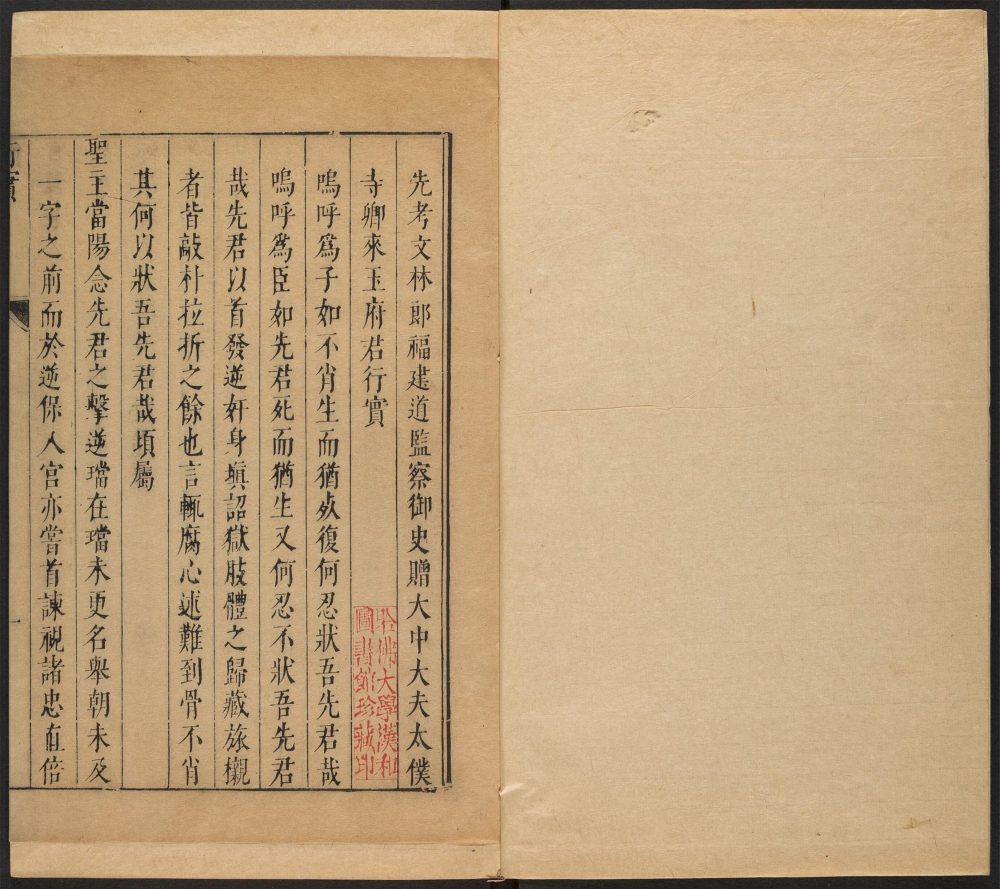 先考文林郎福建道監察御史贈大中大夫太僕
寺卿來玉府君行實
嗚呼爲子如不肖生而猶死復何忍狀吾先君哉
嗚呼爲臣如先君死而猶生又何忍不狀吾先君
哉先君以首發逆奸身塡詔獄肢體之歸藏旅櫬
者皆敲朴拉折之餘也言輒腐心述難到骨不肖
其何以狀吾先君哉頃屬
聖主當陽念先君之擊逆璫在璫未更名舉朝未及
一字之前而於逆保入宮亦嘗首諫視諸忠直倍
行實
一
哈佛大學漢和
圖書館珍藏印